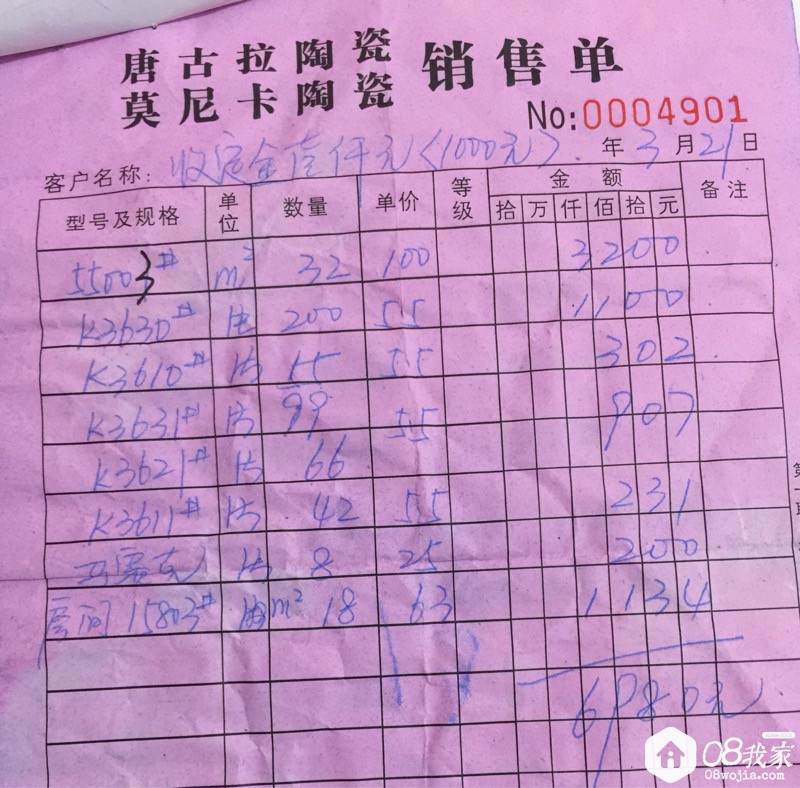 唐古拉陶瓷
莫尼卡陶瓷 销售单
No:0004901
客户名称: 收定金壹仟元<1000元>. 年3月21日
型号及规格 单位 数量 单价 等级 金额 备注
拾 万 仟 佰 拾 元
55003# m² 32 100 3200
K3630# 片 200 5.5 1100
K3610# 片 55 5.5 302
K3631# 片 99 5.5 907
K3621# 片 66
K3611# 片 42 5.5 231
马赛克 片 8 25 200
房间15803# m² 18 63 1134
6980元
第一联
08我家
08wojia.com